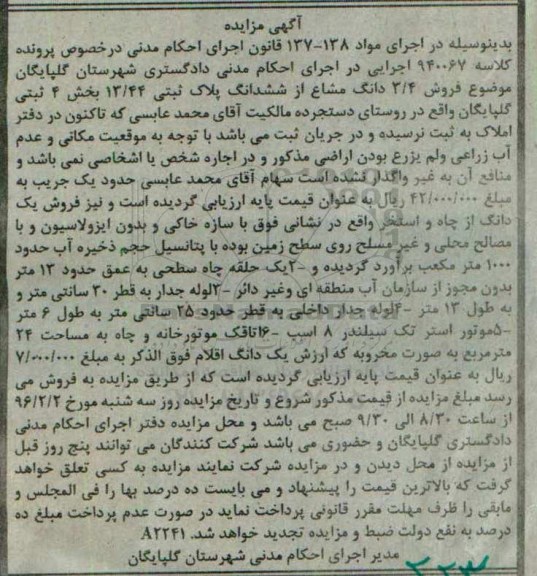 آگهی مزایده
بدینوسیله در اجرای مواد ۱۳۸-۱۳۷ قانون اجرای احکام مدنی درخصوص پرونده
کلاسه ۹۴۰۰۶۷ اجرایی در اجرای احکام مدنی دادگستری شهرستان گلپایگان
موضوع فروش ۳/۴ دانگ مشاع از ششدانگ پلاک ثبتی ۱۳/۴۴ بخش ۴ ثبتی
گلپایگان واقع در روستای دستجرده مالکیت آقای محمد عابسی که تاکنون در دفتر
املاک به ثبت نرسیده و در جریان ثبت می باشد با توجه به موقعیت مکانی و عدم
آب زراعی ولم یزرع بودن اراضی مذکور و در اجاره شخص یا اشخاصی نمی باشد و
منافع آن به غیر واگذار نشده است سهام آقای محمد عابسی حدود یک جریب به
مبلغ ۴۲/۰۰۰/۰۰۰ ریال به عنوان قیمت پایه ارزیابی گردیده است و نیز فروش یک
دانگ از چاه و استخر واقع در نشانی فوق با سازه خاکی و بدون ایزولاسیون و با
مصالح محلی و غیر مسلح روی سطح زمین بوده با پتانسیل حجم ذخیره آب حدود
۱۰۰۰ متر مکعب برآورد گردیده و -۲یک حلقه چاه سطحی به عمق حدود ۱۳ متر
بدون مجوز از سازمان آب منطقه ای وغیر دائر -۳لوله جدار به قطر ۳۰ سانتی متر و
به طول ۱۳ متر -۴لوله جدار داخلی به قطر حدود ۲۵ سانتی متر به طول ۶ متر
-۵موتور استر تک سیلندر ۸ اسب -۶اتاقک موتورخانه و چاه به مساحت ۲۴
مترمربع به صورت مخروبه که ارزش یک دانگ اقلام فوق الذکر به مبلغ ۷/۰۰۰/۰۰۰
ریال به عنوان قیمت پایه ارزیابی گردیده است که از طریق مزایده به فروش می
رسد مبلغ مزایده از قیمت مذکور شروع و تاریخ مزایده روز سه شنبه مورخ ۹۶/۲/۲
از ساعت ۸/۳۰ الی ۹/۳۰ صبح می باشد و محل مزایده دفتر اجرای احکام مدنی
دادگستری گلپایگان و حضوری می باشد شرکت کنندگان می توانند پنج روز قبل
از مزایده از محل دیدن و در مزایده شرکت نمایند مزایده به کسی تعلق خواهد
گرفت که بالاترین قیمت را پیشنهاد و می بایست ده درصد بها را فی المجلس و
مابقی را ظرف مهلت مقرر قانونی پرداخت نماید در صورت عدم پرداخت مبلغ ده
درصد به نفع دولت ضبط و مزایده تجدید خواهد شد. ۸۲۲۴۱
مدیر اجرای احکام مدنی شهرستان گلپایگان